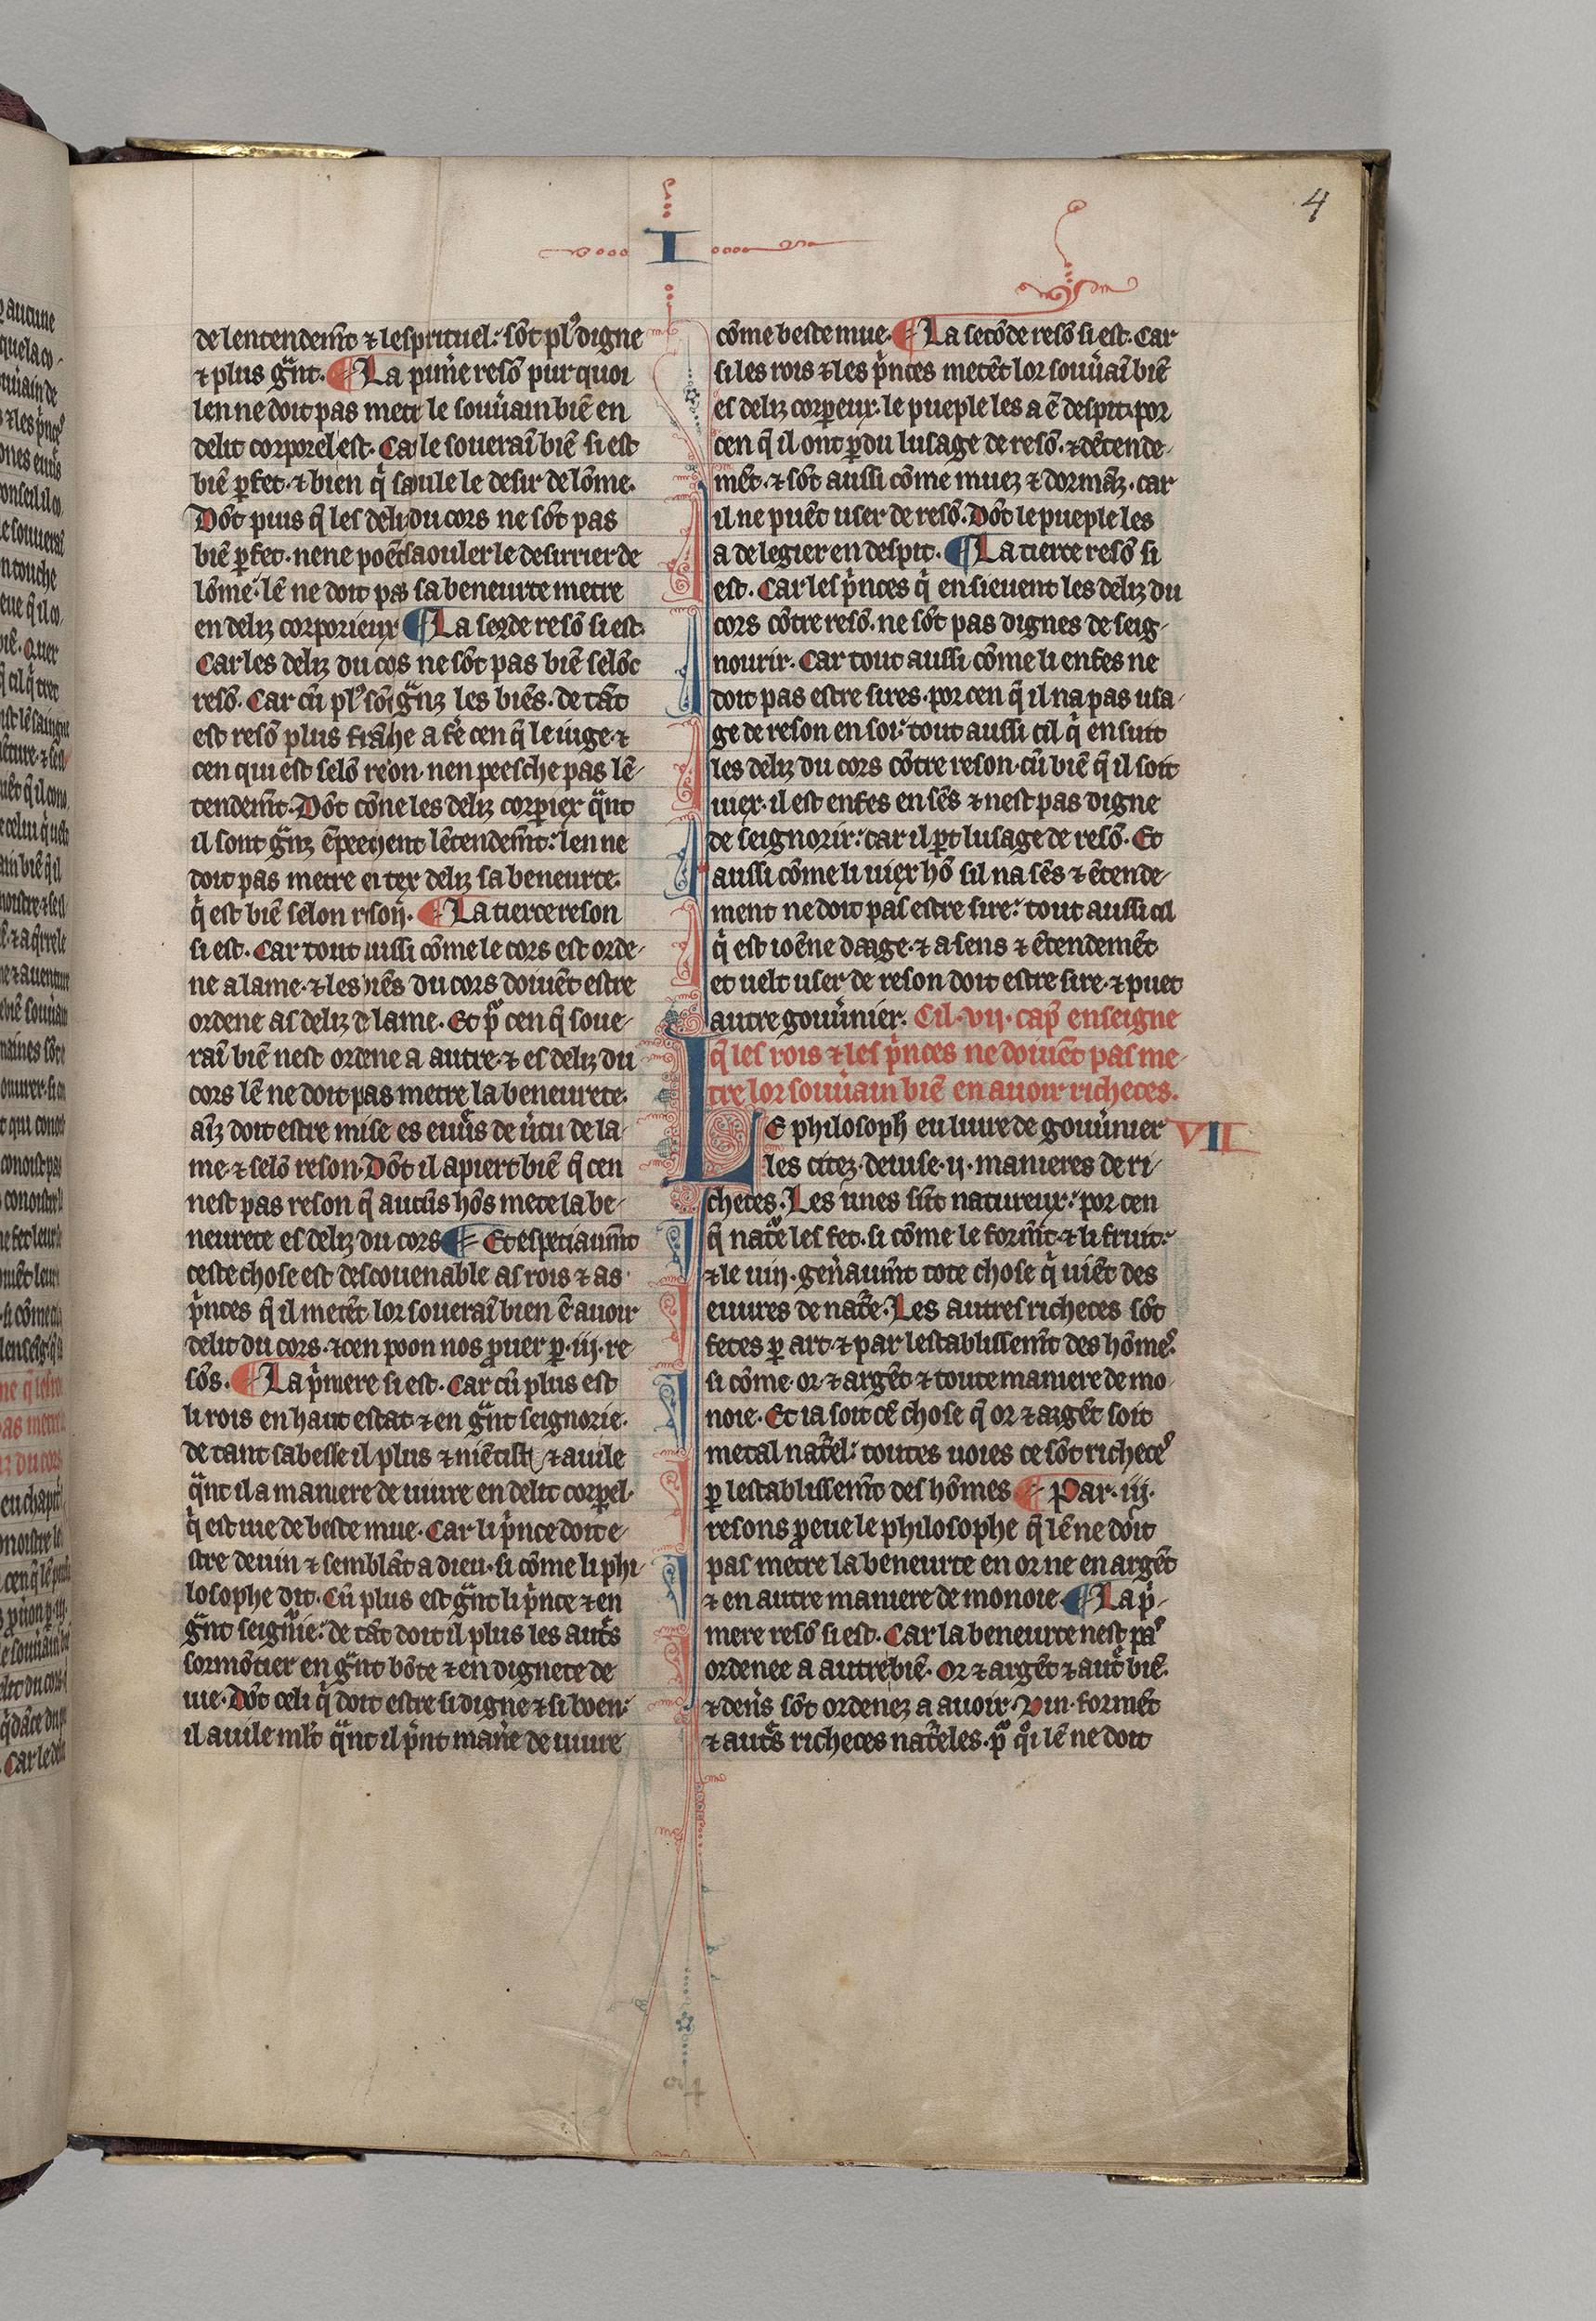 4
I
de lentendem̃t ⁊ lesprituel: sõt plꝰ digne
⁊ plus gͣnt. ¶ La pimͤre resõ pur quoi
len ne doit pas metͤ le souu̾ain biẽ en
delit corporel est. Car le souueraĩ biẽ si est
biẽ ꝑfet. ⁊ bien qͥ saoule le desir de lõme.
Dõt puis q̃ les deliz du cors ne sõt pas
biẽ ꝑfet. ne ne poẽt saouler le desirrier de
lõme. lẽ ne doit pas sa beneurte metre
en deliz corporieux ¶ La segõde resõ si est.
Car les deliz du cors ne sõt pas biẽ selõc
resõ. Car cũ plꝰ sõt gͣnz les biẽs. de tãt
est resõ plus frãche a fͤe cen q̃ le iuge. ⁊
cen qui est selõ reson. nen peesche pas lẽ-
tendem̃t. Dõt cõme les deliz corꝑiex qͣnt
il sont gͣnz ẽpeeschent lẽtendem̃t: len ne
doit pas metre en tex deliz sa beneurte.
qͥ est biẽ selon reson. ¶ La tierce reson
si est. Car tout aussi cõme le cors est orde-
ne a lame. ⁊ les biẽs du cors doiuẽt estre
ordene as deliz de lame. Et pͬ cen q̃ soue-
raĩ biẽ nest ordene a autre. ⁊ es deliz du
cors lẽ ne doit pas metre la beneurete.
aĩz doit estre mise es euur̾s de u̾tu de la-
me. ⁊ selõ reson. Dõt il apiert biẽ q̃ cen
nest pas reson q̃ aucũs hõs mete la be-
neurete es deliz du cors ¶ Et especiaum̃t
ceste chose est descouenable as rois ⁊ as
pͥnces q̃ il metẽt lor soueraĩ bien ẽ auoir
delit du cors. ⁊ cen poon nos ꝓuer ꝑ .iij. re
sõs. ¶ La pͥmere si est. Car cũ plus est
li rois en haut estat ⁊ en gͣnt seignorie.
de tant sabesse il plus ⁊ amẽtist ⁊ auile
qͣnt il a maniere de uiure en delit corꝑel.
qͥ est uie de beste mue. Car li pͥnce doit e-
stre deuin ⁊ semblãt a dieu. si cõme li phi-
losophe dit. Cũ plus est gͣnt li pͥnce ⁊ en
gͣnt seignͬie: de tãt doit il plus les autͤs
sormõtier en gͣnt bõte ⁊ en dignete de
uie. Dõt celi qͥ doit estre si digne ⁊ si boen:
il auile ml̃t qͣnt il pͥnt manͤe de uiure
cõme beste mue. ¶ La secõde resõ si est. Car
si les rois ⁊ les pͥnces metẽt lor souu̾aĩ biẽ
es deliz corꝑeux. le pueple les a ẽ despit. por
cen q̃ il ont ꝑdu lusage de resõ. ⁊ dẽtende-
mẽt. ⁊ sõt aussi cõme muez ⁊ dormãz. car
il ne puẽt user de resõ. Dõt le pueple les
a de legier en despit. ¶ La tierce resõ si
est. Car les pͥnces qͥ ensieuent les deliz du
cors cõtre resõ. ne sõt pas dignes de seig-
nourir. Car tout aussi cõme li enfes ne
doit pas estre sires. por cen q̃ il na pas usa-
ge de reson en soi: tout aussi cil qͥ ensuit
les deliz du cors cõtre reson. cũ biẽ q̃ il soit
uiex. il est enfes en sẽs ⁊ nest pas digne
de seignorir: car il ꝑt lusage de resõ. Et
aussi cõme li uiex hõ sil na sẽs ⁊ ẽtende-
ment ne doit pas estre sire: tout aussi cil
qͥ est ioẽne daage. ⁊ a sens ⁊ ẽtendemẽt.
et uelt user de reson doit estre sire. ⁊ puet
autre gouu̾nier. Cil .vij. cap̃ enseigne
q̃ les rois ⁊ les pͥnces ne doiuẽt pas me-
tre lor souu̾ain biẽ en auoir richeces.
LE philosoph̃ eu liure de gouu̾nier VII
les citez. deuise .ij. manieres de ri-
checes. Les unes sũt natureux: por cen
q̃ natͬe les fet. si cõme le form̃t. ⁊ li fruit.
⁊ le uin. gen̾aum̃t tote chose qͥ uiẽt des
euures de natͬe. Les autres richeces sõt
fetes ꝑ art. ⁊ par lestablissem̃t des hõmeꝰ.
si cõme. or. ⁊ argẽt ⁊ toute maniere de mo-
noie. Et ia soit cẽ chose q̃ or ⁊ argẽt soit
metal natͬel: toutes uoies ce sõt richeceꝰ
ꝑ lestablissem̃t des hõmes ¶ Par .iij.
resons ꝓeue le philosophe q̃ lẽ ne doit
pas metre la beneurte en or ne en argẽt
⁊ en autre maniere de monoie. ¶ La pͥ-
mere resõ si est. Car la beneurte nest paꝰ
ordenee a autre biẽ. Or ⁊ argẽt ⁊ autͤ biẽ.
⁊ denͥs sõt ordenez a auoir. Vin. formẽt
⁊ autͤs richeces natͬeles. pͬ qͦi lẽ ne doit